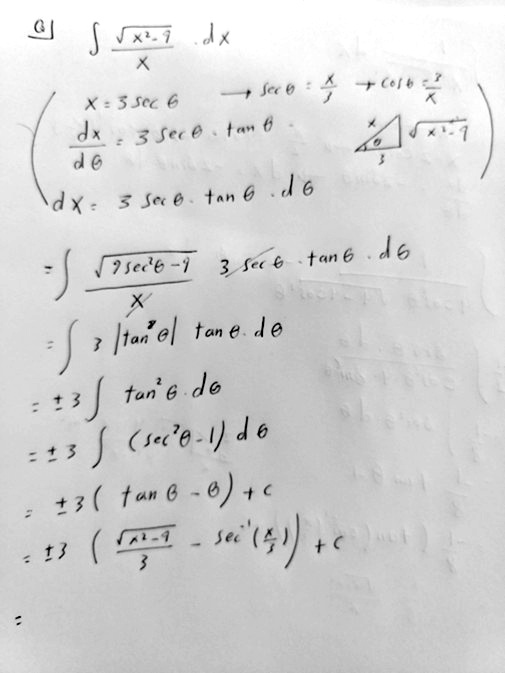 Q1 ∫ √(x²-9) / x . dx
( x = 3 sec θ → sec θ = x/3 → cos θ = 3/x
dx/dθ = 3 sec θ . tan θ . x θ 3 √(x²-9)
dx = 3 sec θ . tan θ . dθ )
= ∫ √(9sec²θ-9) / x 3 sec θ . tan θ . dθ
= ∫ 3 |tan θ| tan θ . dθ
= ±3 ∫ tan²θ . dθ
= ±3 ∫ (sec²θ-1) dθ
= ±3 ( tan θ - θ) + c
= ±3 ( √(x²-9) / 3 - sec⁻¹(x/3) ) + c
=